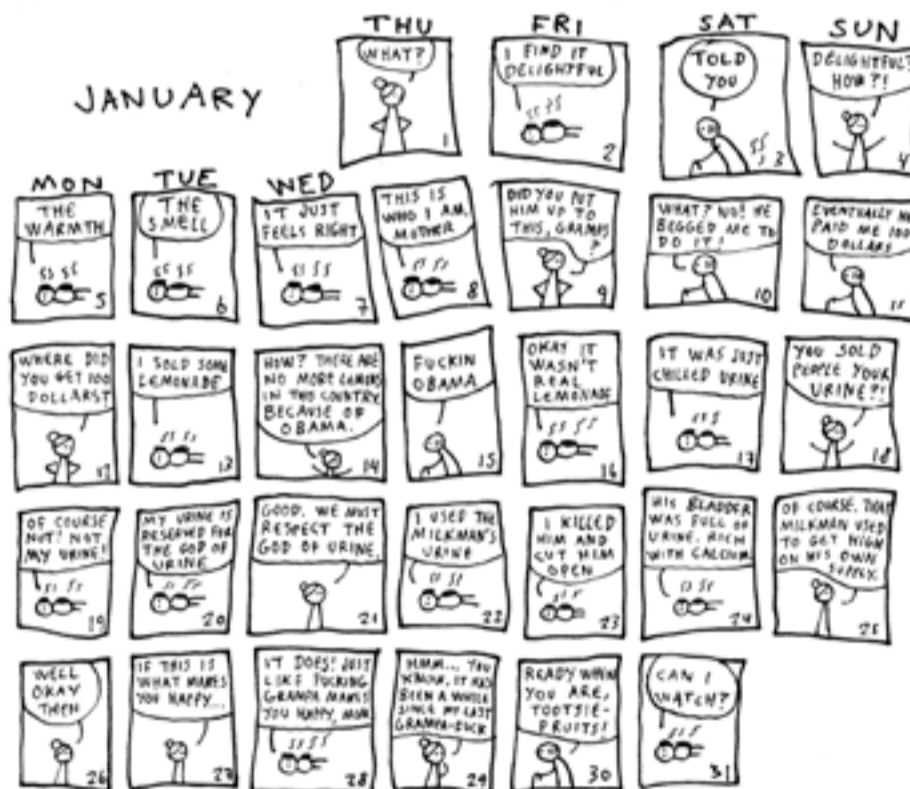 JANUARY
THU
FRI
SAT
SUN
WHAT?
1
I FIND IT
DELIGHTFUL
2
TOLD
YOU
3
DELIGHTFUL?
HOW?!
4
MON
TUE
WED
THE
WARMTH
5
THE
SMELL
6
IT JUST
FEELS RIGHT
7
THIS IS
WHO I AM,
MOTHER
8
DID YOU PUT
HIM UP TO
THIS, GRAMPS
?
9
WHAT? NO! HE
BEGGED ME TO
DO IT!
10
EVENTUALLY HE
PAID ME 100
DOLLARS
11
WHERE DID
YOU GET 100
DOLLARS?
12
I SOLD SOME
LEMONADE
13
HOW? THERE ARE
NO MORE LEMONS
IN THIS COUNTRY
BECAUSE OF
OBAMA.
14
FUCKIN
OBAMA
15
OKAY IT
WASN'T
REAL
LEMONADE
16
IT WAS JUST
CHILLED URINE
17
YOU SOLD
PEOPLE YOUR
URINE?!
18
OF COURSE
NOT! NOT
MY URINE!
19
MY URINE IS
RESERVED FOR
THE GOD OF
URINE
20
GOOD. WE MUST
RESPECT THE
GOD OF URINE.
21
I USED THE
MILKMAN'S
URINE
22
I KILLED
HIM AND
CUT HIM
OPEN
23
HIS BLADDER
WAS FULL OF
URINE. RICH
WITH CALCIUM
24
OF COURSE. THAT
MILKMAN USED
TO GET HIGH
ON HIS OWN
SUPPLY.
25
WELL
OKAY
THEN
26
IF THIS IS
WHAT MAKES
YOU HAPPY...
27
IT DOES! JUST
LIKE FUCKING
GRAMPA MAKES
YOU HAPPY, MOM
28
HMM... YOU
KNOW, IT HAS
BEEN A WHILE
SINCE MY LAST
GRAMPA-FUCK
29
READY WHEN
YOU ARE,
TOOTSIE-
FRUITS!
30
CAN I
WATCH?
31